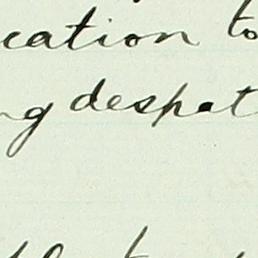 cation to
ng despat